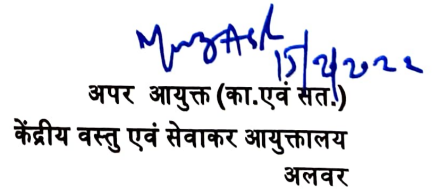 15/2/2022
अपर आयुक्त (का.एवं सत.)
केंद्रीय वस्तु एवं सेवाकर आयुक्तालय
अलवर